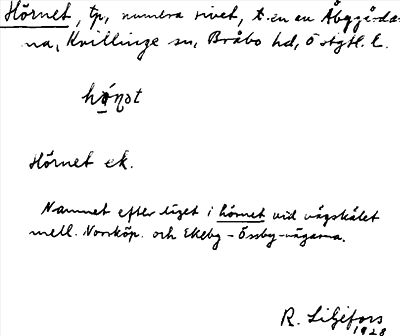 Hörnet, tp, numera rivet, t. en av Åbygårda-
na, Kvillinge sn, Bråbo hd, Östgtl. l.
Hörnet ek.
Namnet efter läget i hörnet vid vägskälet
mell. Norrköp. och Ekeby - Össby-vägarna.
R. Liljefors
1928